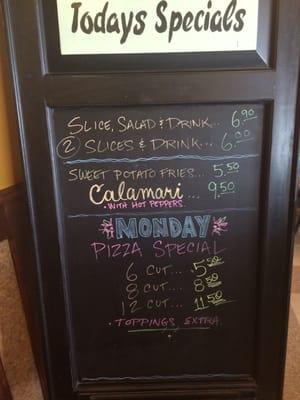 Todays Specials
SLICE, SALAD & DRINK... 6.90
② SLICES & DRINK... 6.00
SWEET POTATO FRIES... 5.50
Calamari... 9.50
• WITH HOT PEPPERS
MONDAY
PIZZA SPECIAL
6 CUT.... 5.50
8 CUT.... 8.50
12 CUT.... 11.50
• TOPPINGS EXTRA •